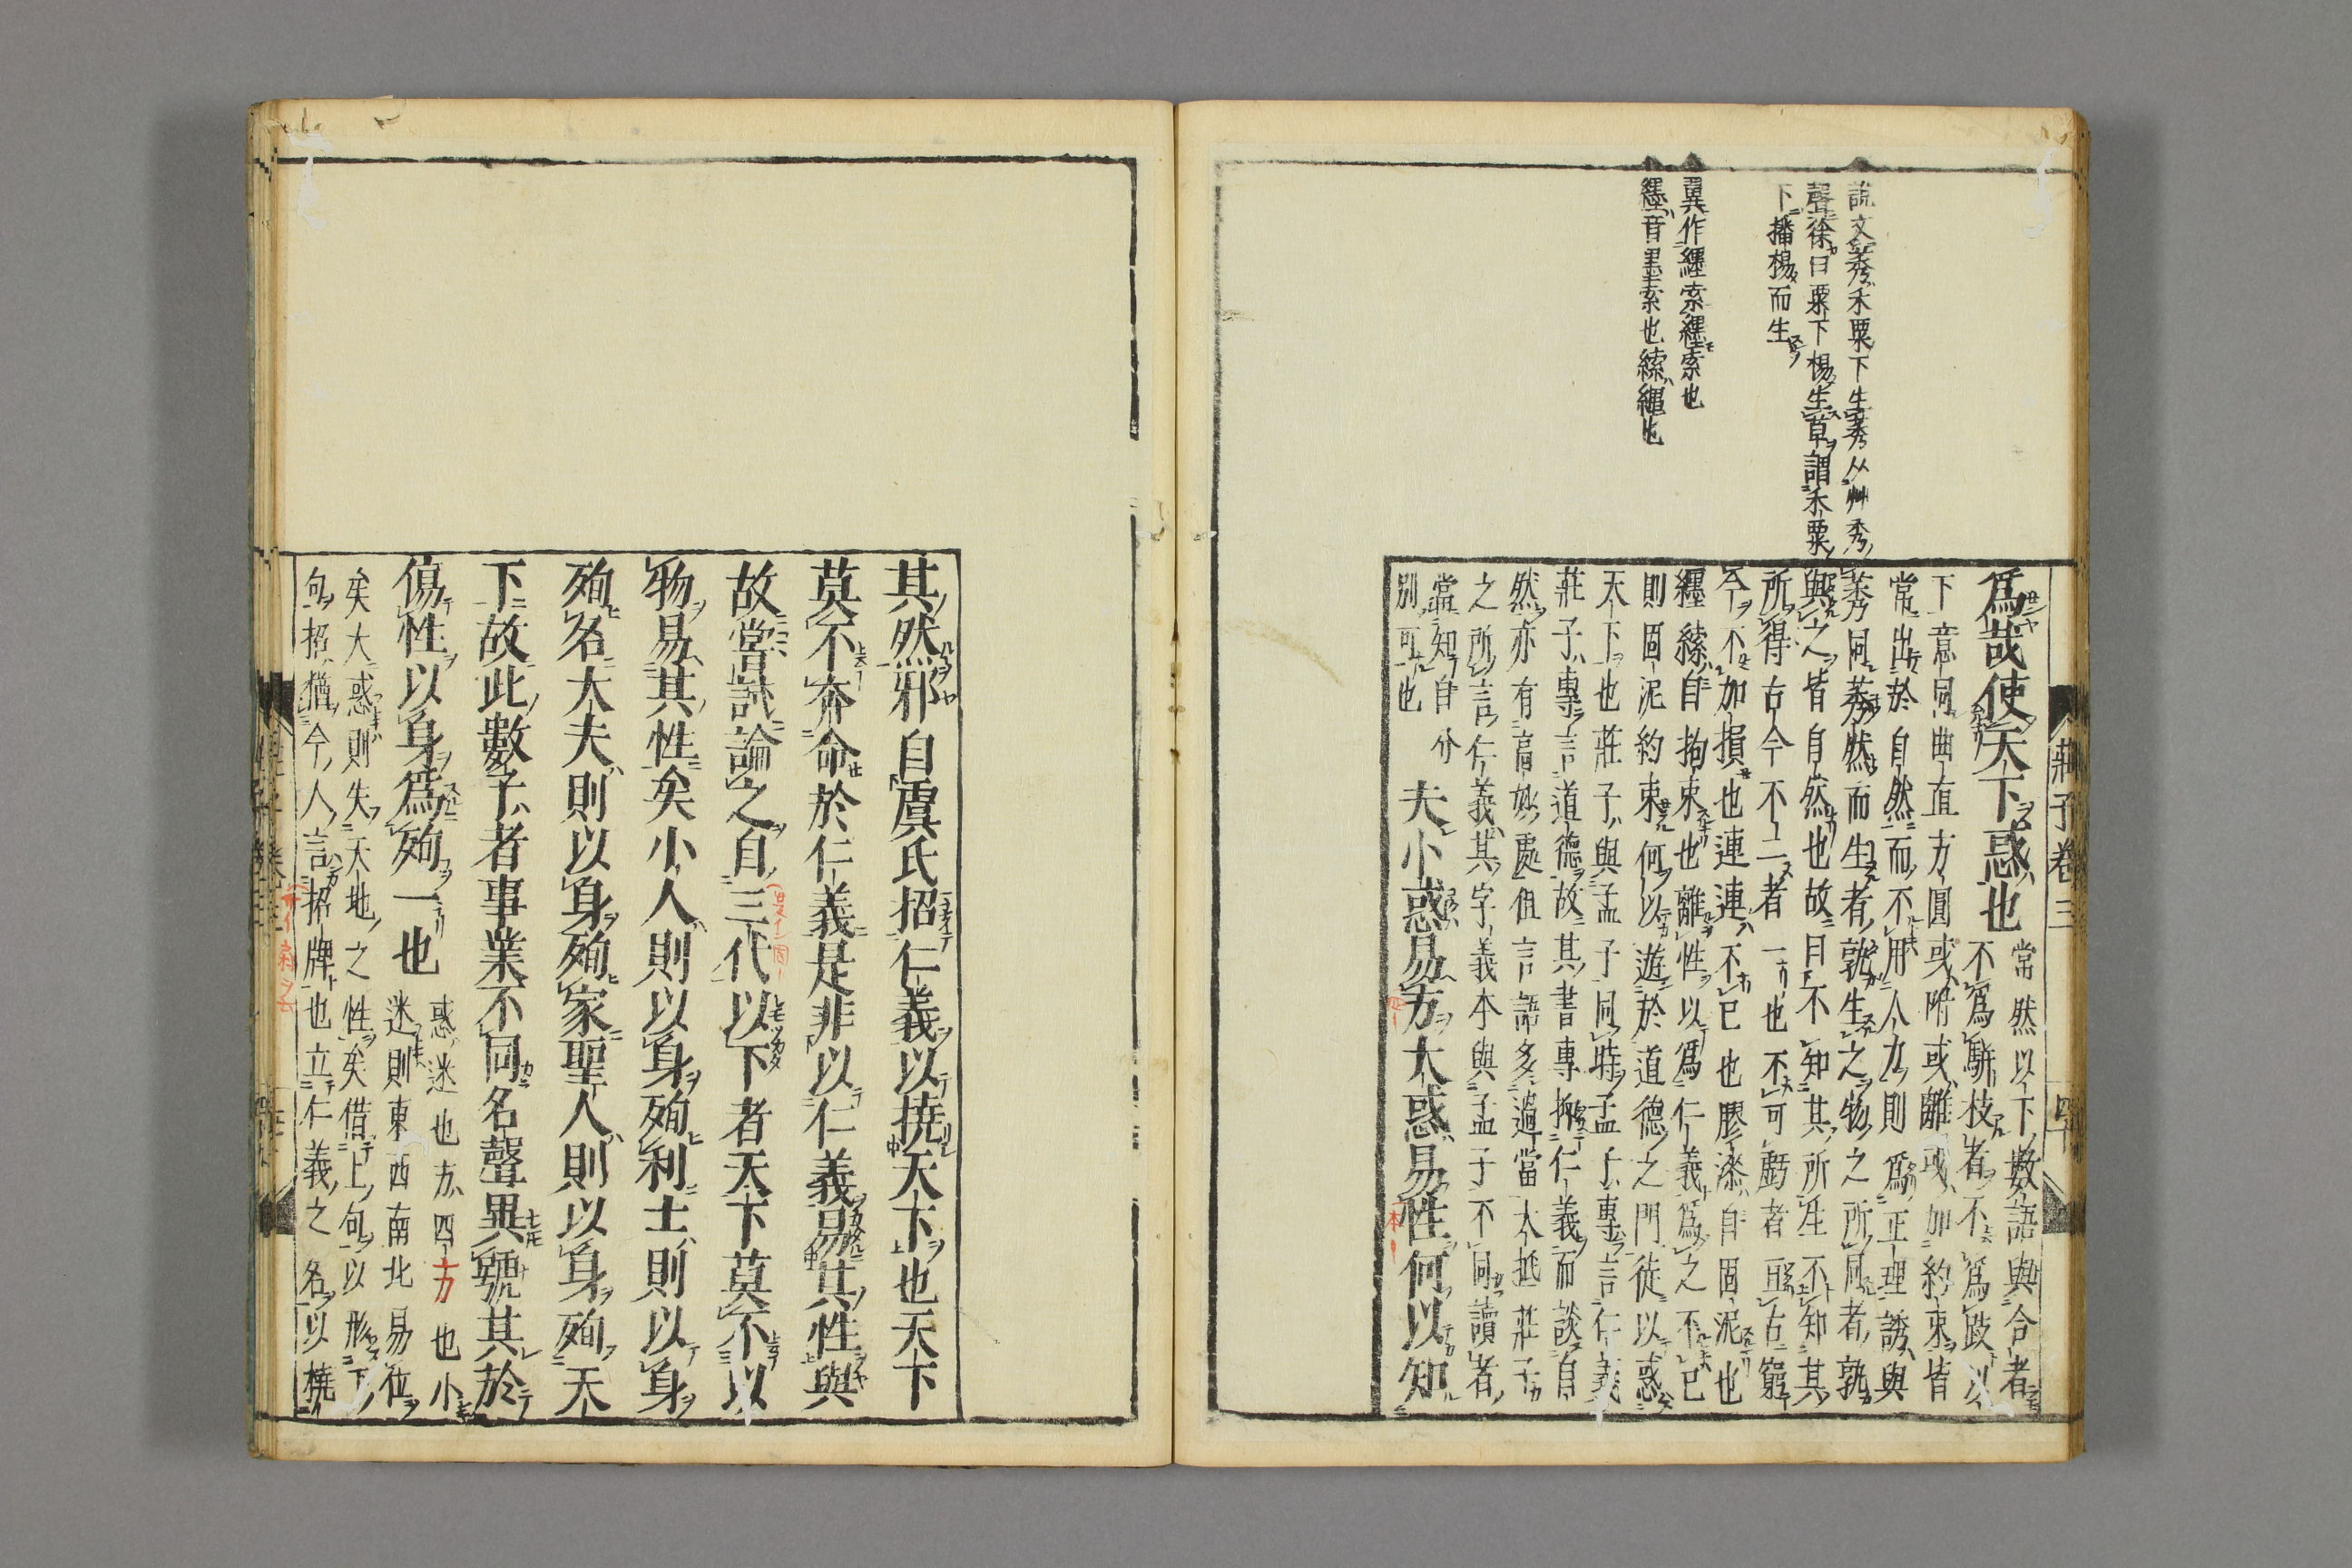 說文莠禾粟下生莠从艸秀
聲徐曰粟下楊生草謂禾粟
下播楊而生
翼作纆索纆索也
纆音墨索也纆繩也
莊子卷三
四十
爲哉使天下惑也
常然以下數語與合者
不爲駢枝者不爲跂以
下意同曲直方圓或附或離或加約束皆
常出於自然而不用人力則爲正理誘與
莠同莠然而生者孰生之物之所同者孰
與之皆自然也故曰不知其所生不知其
所得古今不二者一也不可虧者亘古窮
今不加損也連連不已也膠漆自固泥也
纆索自拘束也離性以爲仁義爲之不已
則固泥約束何以遊於道德之門徒以惑
天下也莊子與孟子同時孟子專言仁義
莊子專言道德故其書專抑仁義而談自
然亦有高妙處但言語多過當大抵莊子
之所言仁義其字義本與孟子不同讀者
當知自分
別可也
夫小惑易方大惑易性何以知
其然邪自虞氏招仁義以撓天下也天下
莫不奔命於仁義是非以仁義易其性與
故嘗試論之自三代以下者天下莫不以
物易其性矣小人則以身殉利士則以身
殉名大夫則以身殉家聖人則以身殉天
下故此數子者事業不同名聲異號其於
傷性以身爲殉一也
惑迷也方四方也小
迷則東西南北易位
矣大惑則失天地之性矣借上句以形下
句招猶今人言招牌也立仁義之名以撓